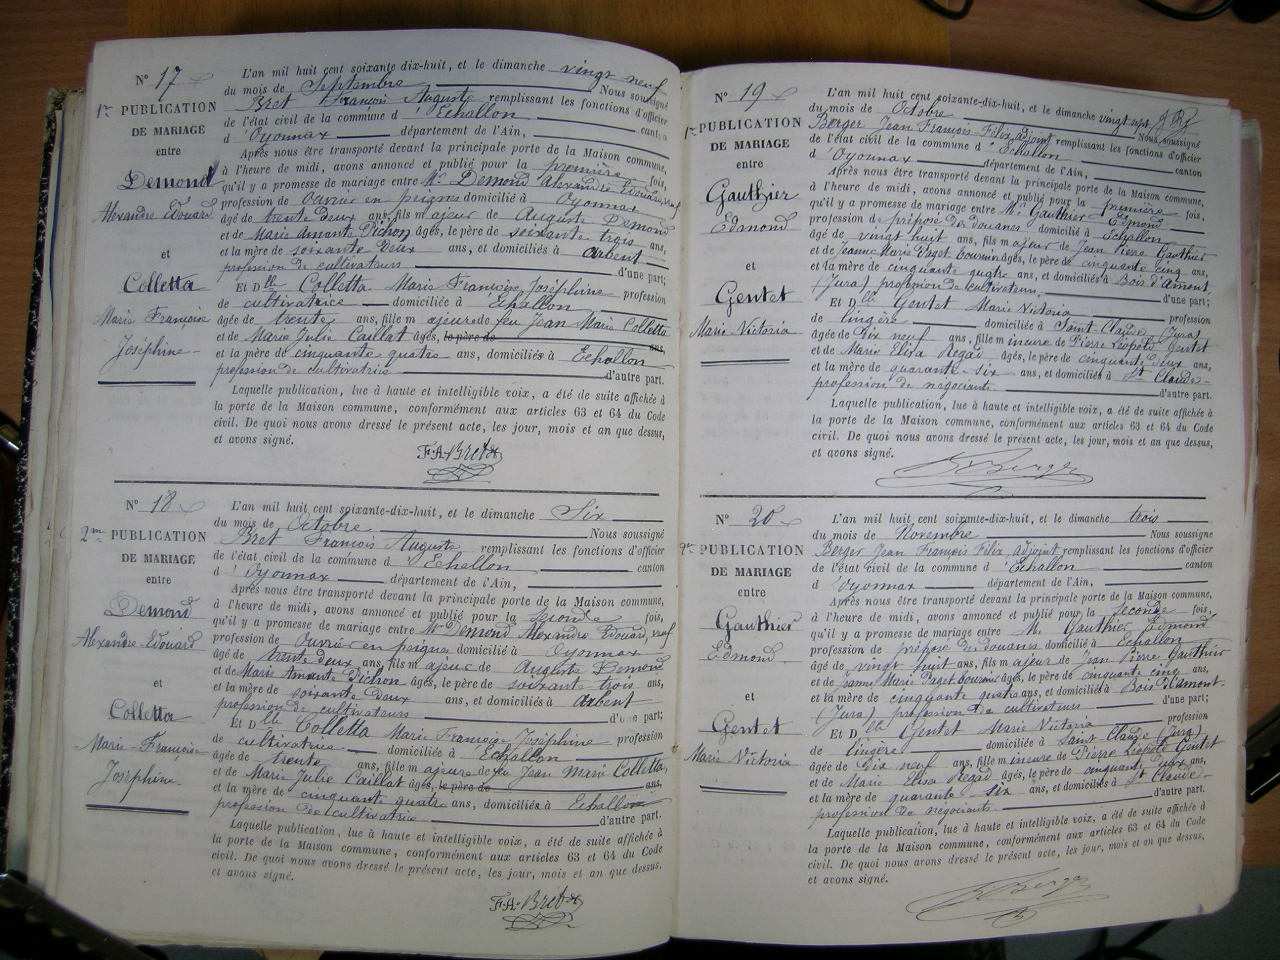 Nº 17
1re PUBLICATION
DE MARIAGE
entre
Demond
Alexandre Edouard
et
Colletta
Marie Françoise
Joséphine
L'an mil huit cent soixante dix-huit, et le dimanche vingt neuf
du mois de Septembre Nous soussigné
Bret François Auguste remplissant les fonctions d'officier
de l'état civil de la commune d'Echallon canton
d'Oyonnax département de l'Ain,
Après nous être transporté devant la principale porte de la Maison commune,
à l'heure de midi, avons annoncé et publié pour la première fois,
qu'il y a promesse de mariage entre Mr Demond Alexandre Edouard, veuf
profession de ouvrier en peignes domicilié à Oyonnax
âgé de trente deux ans, fils majeur de Auguste Demond
et de Marie Amante Pichon âgés, le père de soixante trois ans,
et la mère de soixante deux ans, et domiciliés à Arbent
profession de cultivateurs d'une part;
Et Dlle Colletta Marie Françoise Joséphine profession
de cultivatrice domiciliée à Echallon
âgée de trente ans, fille majeure de feu Jean Marie Colletta
et de Marie Julie Caillat âgés, le père de ans,
et la mère de cinquante quatre ans, domiciliés à Echallon
profession de cultivatrice d'autre part.
Laquelle publication, lue à haute et intelligible voix, a été de suite affichée à
la porte de la Maison commune, conformément aux articles 63 et 64 du Code
civil. De quoi nous avons dressé le présent acte, les jour, mois et an que dessus,
et avons signé.
F.A. Bret
Nº 18
2me PUBLICATION
DE MARIAGE
entre
Demond
Alexandre Edouard
et
Colletta
Marie-Françoise
Joséphine
L'an mil huit cent soixante-dix-huit, et le dimanche Six
du mois de Octobre Nous soussigné
Bret François Auguste remplissant les fonctions d'officier
de l'état civil de la commune d'Echallon canton
d'Oyonnax département de l'Ain,
Après nous être transporté devant la principale porte de la Maison commune,
à l'heure de midi, avons annoncé et publié pour la seconde fois,
qu'il y a promesse de mariage entre Mr Demond Alexandre Edouard, veuf
profession de Ouvrier en peignes domicilié à Oyonnax
âgé de trente deux ans, fils majeur de Auguste Demond
et de Marie Amante Pichon âgés, le père de soixante trois ans,
et la mère de soixante deux ans, et domiciliés à Arbent
profession de cultivateurs d'une part;
Et Dlle Colletta Marie Françoise Joséphine profession
de cultivatrice domiciliée à Echallon
âgée de trente ans, fille majeure de feu Jean Marie Colletta,
et de Marie Julie Caillat âgés, le père de ans,
et la mère de cinquante quatre ans, domiciliés à Echallon
profession de cultivatrice d'autre part.
Laquelle publication, lue à haute et intelligible voix, a été de suite affichée à
la porte de la Maison commune, conformément aux articles 63 et 64 du Code
civil. De quoi nous avons dressé le présent acte, les jour, mois et an que dessus,
et avons signé.
F.A. Bret
Nº 19
1re PUBLICATION
DE MARIAGE
entre
Gauthier
Edmond
et
Gentet
Marie Victoria
L'an mil huit cent soixante-dix-huit, et le dimanche vingt sept
du mois de Octobre Nous soussigné
Berger Jean François Félix adjoint remplissant les fonctions d'officier
de l'état civil de la commune d'Echallon canton
d'Oyonnax département de l'Ain,
Après nous être transporté devant la principale porte de la Maison commune,
à l'heure de midi, avons annoncé et publié pour la première fois,
qu'il y a promesse de mariage entre Mr Gauthier Edmond
profession de préposé des douanes domicilié à Echallon
âgé de vingt huit ans, fils majeur de Jean Pierre Gauthier
et de Jeanne Marie Paget âgés, le père de cinquante cinq ans,
et la mère de cinquante quatre ans, et domiciliés à Bois d'Amont
(Jura) profession de cultivateurs d'une part;
Et Dlle Gentet Marie Victoria profession
de lingère domiciliée à Saint Claude (Jura)
âgée de Dix neuf ans, fille mineure de Pierre Léopold Gentet
et de Marie Elisa Regad âgés, le père de cinquante deux ans,
et la mère de quarante six ans, et domiciliés à St Claude
profession de négociants d'autre part.
Laquelle publication, lue à haute et intelligible voix, a été de suite affichée à
la porte de la Maison commune, conformément aux articles 63 et 64 du Code
civil. De quoi nous avons dressé le présent acte, les jour, mois et an que dessus,
et avons signé.
Berger
Nº 20
2e PUBLICATION
DE MARIAGE
entre
Gauthier
Edmond
et
Gentet
Marie Victoria
L'an mil huit cent soixante-dix-huit, et le dimanche trois
du mois de Novembre Nous soussigné
Berger Jean François Félix adjoint remplissant les fonctions d'officier
de l'état civil de la commune d'Echallon canton
d'Oyonnax département de l'Ain,
Après nous être transporté devant la principale porte de la Maison commune,
à l'heure de midi, avons annoncé et publié pour la seconde fois,
qu'il y a promesse de mariage entre M. Gauthier Edmond
profession de préposé des douanes domicilié à Echallon
âgé de vingt huit ans, fils majeur de Jean Pierre Gauthier
et de Jeanne Marie Paget âgés, le père de cinquante cinq ans,
et la mère de cinquante quatre ans, et domiciliés à Bois d'Amont
(Jura) profession de cultivateurs d'une part;
Et Dlle Gentet Marie Victoria profession
de lingère domiciliée à Saint Claude (Jura)
âgée de Dix neuf ans, fille mineure de Pierre Léopold Gentet
et de Marie Elisa Regad âgés, le père de cinquante deux ans,
et la mère de quarante six ans, et domiciliés à St Claude
profession de négociants d'autre part.
Laquelle publication, lue à haute et intelligible voix, a été de suite affichée à
la porte de la Maison commune, conformément aux articles 63 et 64 du Code
civil. De quoi nous avons dressé le présent acte, les jour, mois et an que dessus,
et avons signé.
Berger